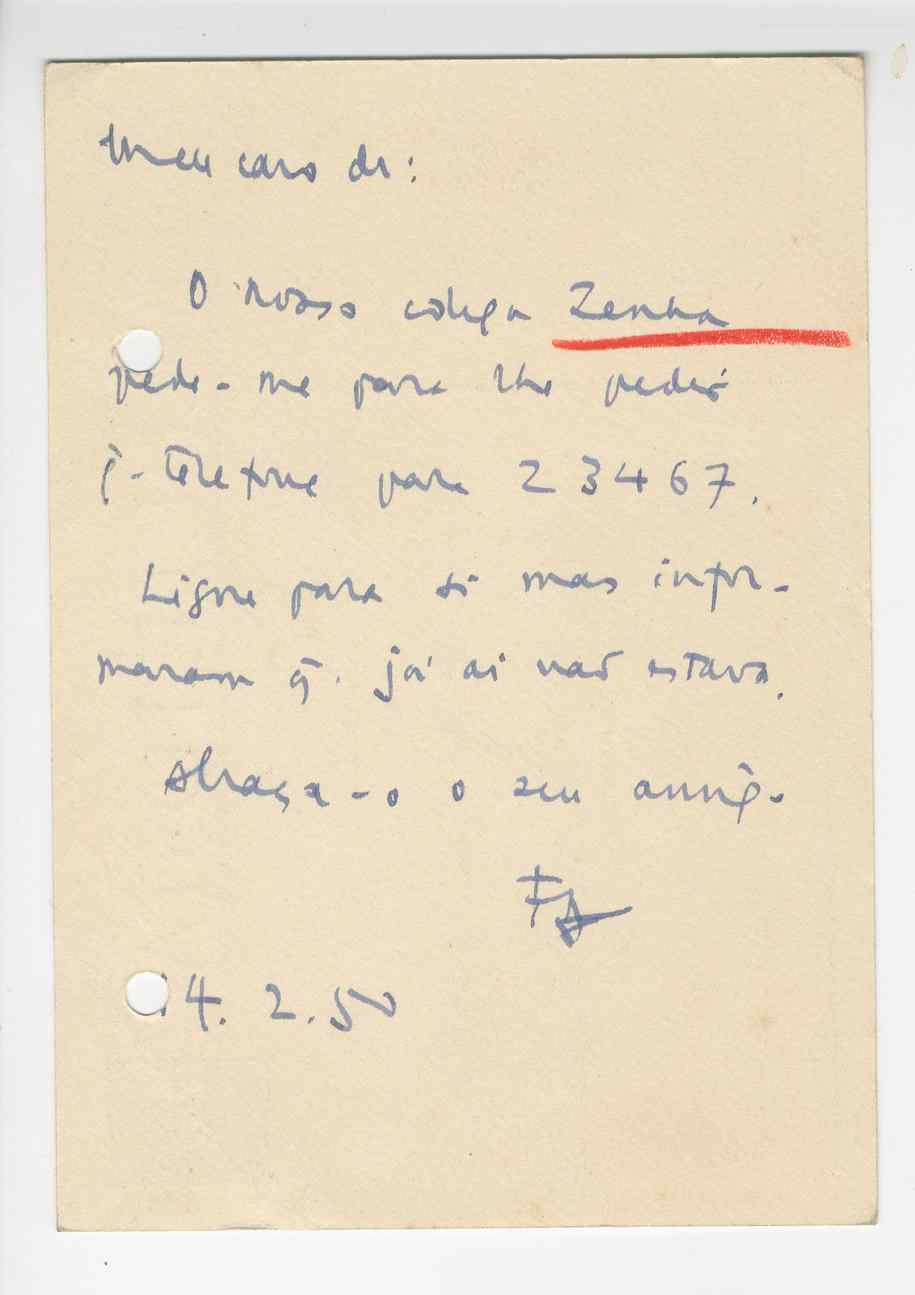 Meu caro dr:
O nosso colega Zenha
pede-me para lhe pedir
q. telefone para 23467.
Liguei para si mas infor-
maram q. já aí não estava.
Abraça-o o seu amigo.
FA
14.2.50